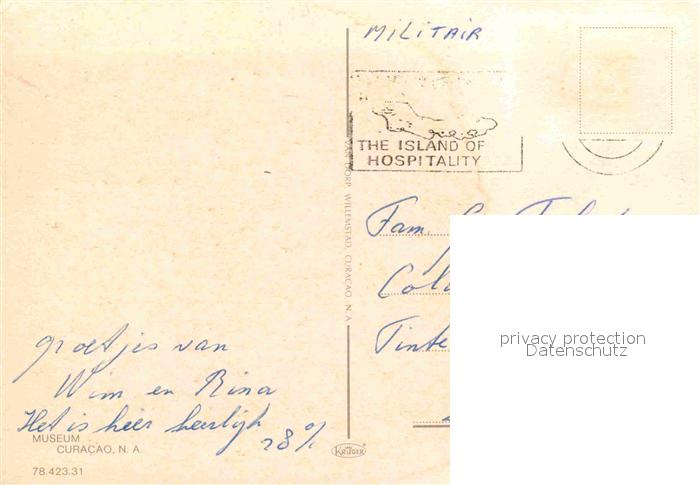 MILITAIR
THE ISLAND OF
HOSPITALITY
VAN DORP WILLEMSTAD, CURAÇAO, N. A.
Fam.
Tinte
privacy protection
Datenschutz
groetjes van
Wim en Rina
Het is hier heerlijk
28 %
MUSEUM
CURAÇAO, N. A.
KRÜGER
78.423.31